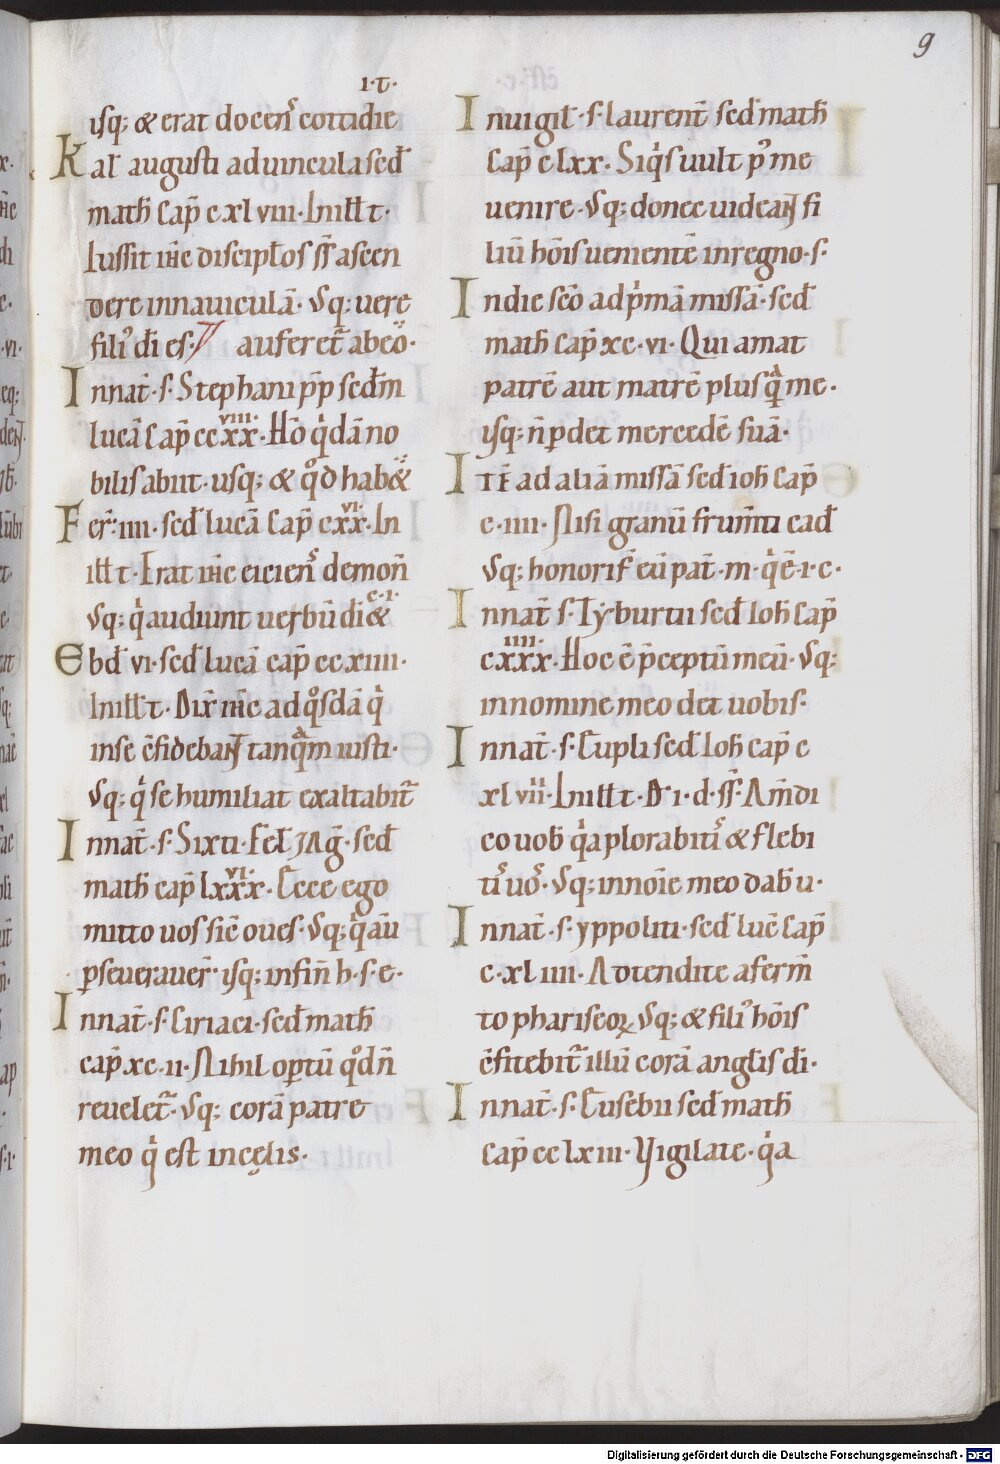 9
·I·T·
usq; & erat docenſ cottidie
Kal augusti ad uincula sed
math cap̄ c xl viii· In ill t·
Iussit ihc discipłos sſ ascen
dere in nauiculā· Usq; uere
fili' dī es· auferet̄ ab eo·
In nat̄· s· Stephani p̄p sedm
lucā cap̄ cc xx viii· Hō q'dā no
bilis abiit· usq; & qđ hab&
Fer· iiii· sed lucā cap̄ c xx vi· In
ill t· Erat ihc eicienſ demoñ
Usq; q' audiunt uerbū dī & c·i·
Ebd vi· sed lucā cap̄ cc xiiii·
In ill t· Dix̄ ihc ad qosdā q'
in se c̄fidebant tanqam iusti·
Usq; q' se humiliat exaltabit̄
In nat̄· s· Sixti· Fel· & Ag̅· sed
math cap̄ lxxx vi· Ecce ego
mitto uos sic̄ oues· Usq; q' aū
pseuerauer̄· usq; in fiñ h·s·e·
In nat̄· s· Ciriaci· sed math
cap̄ xc·ii· Nihil optū qđ ñ
reuelet̄· Usq; corā patre
meo q' est in cęlis·
In uigil· s· laurent̄ sed math
cap̄ c lxx· Siq's uult p' me
uenire· Usq; donec uideant fi
liū hōis uenientē in regno· s·
In die sc̄o ad p'mā missā· sed
math cap̄ xc·vi· Qui amat
patrē aut matrē plus qā me·
usq; ñ pdet mercedē suā·
Iī ad aliā missā sed ioh cap̄
c·iiii· Nisi granū frum̄ti cad
Usq; honorif̄ eū pat̄· m· q' ē·i·c·
In nat̄ s· Tyburtii sed Ioh cap̄
cxxx iiii· Hoc ē p̄ceptū meū· Usq;
in nomine meo det uobis·
In nat̄· s· Eupli sed Ioh cap̄ c
xl vii· In ill t· D· i· d· sſ· Am̄ di
co uob q'a plorabit' & flebi
t' uos· Usq; in noīe meo dab u·
In nat̄· s· yppoliti· sed luc̄ cap̄
c·xl iiii· Adtendite a ferm̄
to phariseoꝝ Usq; & fili' hōis
c̄fitebit̄ illū corā angłis dī·
In nat̄· s· Eusebii sed math
cap̄ cc lxiii· Vigilate· q'a
Digitalisierung gefördert durch die Deutsche Forschungsgemeinschaft - DFG